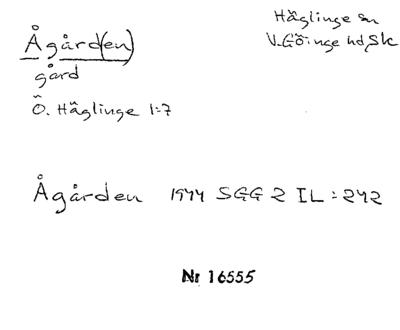 Ågård(en)
Häglinge sn
V. Göinge hd, Sk
gård
Ö. Häglinge 1:7
Ågården 1944 SGG 2 IL:242
Nr 16555